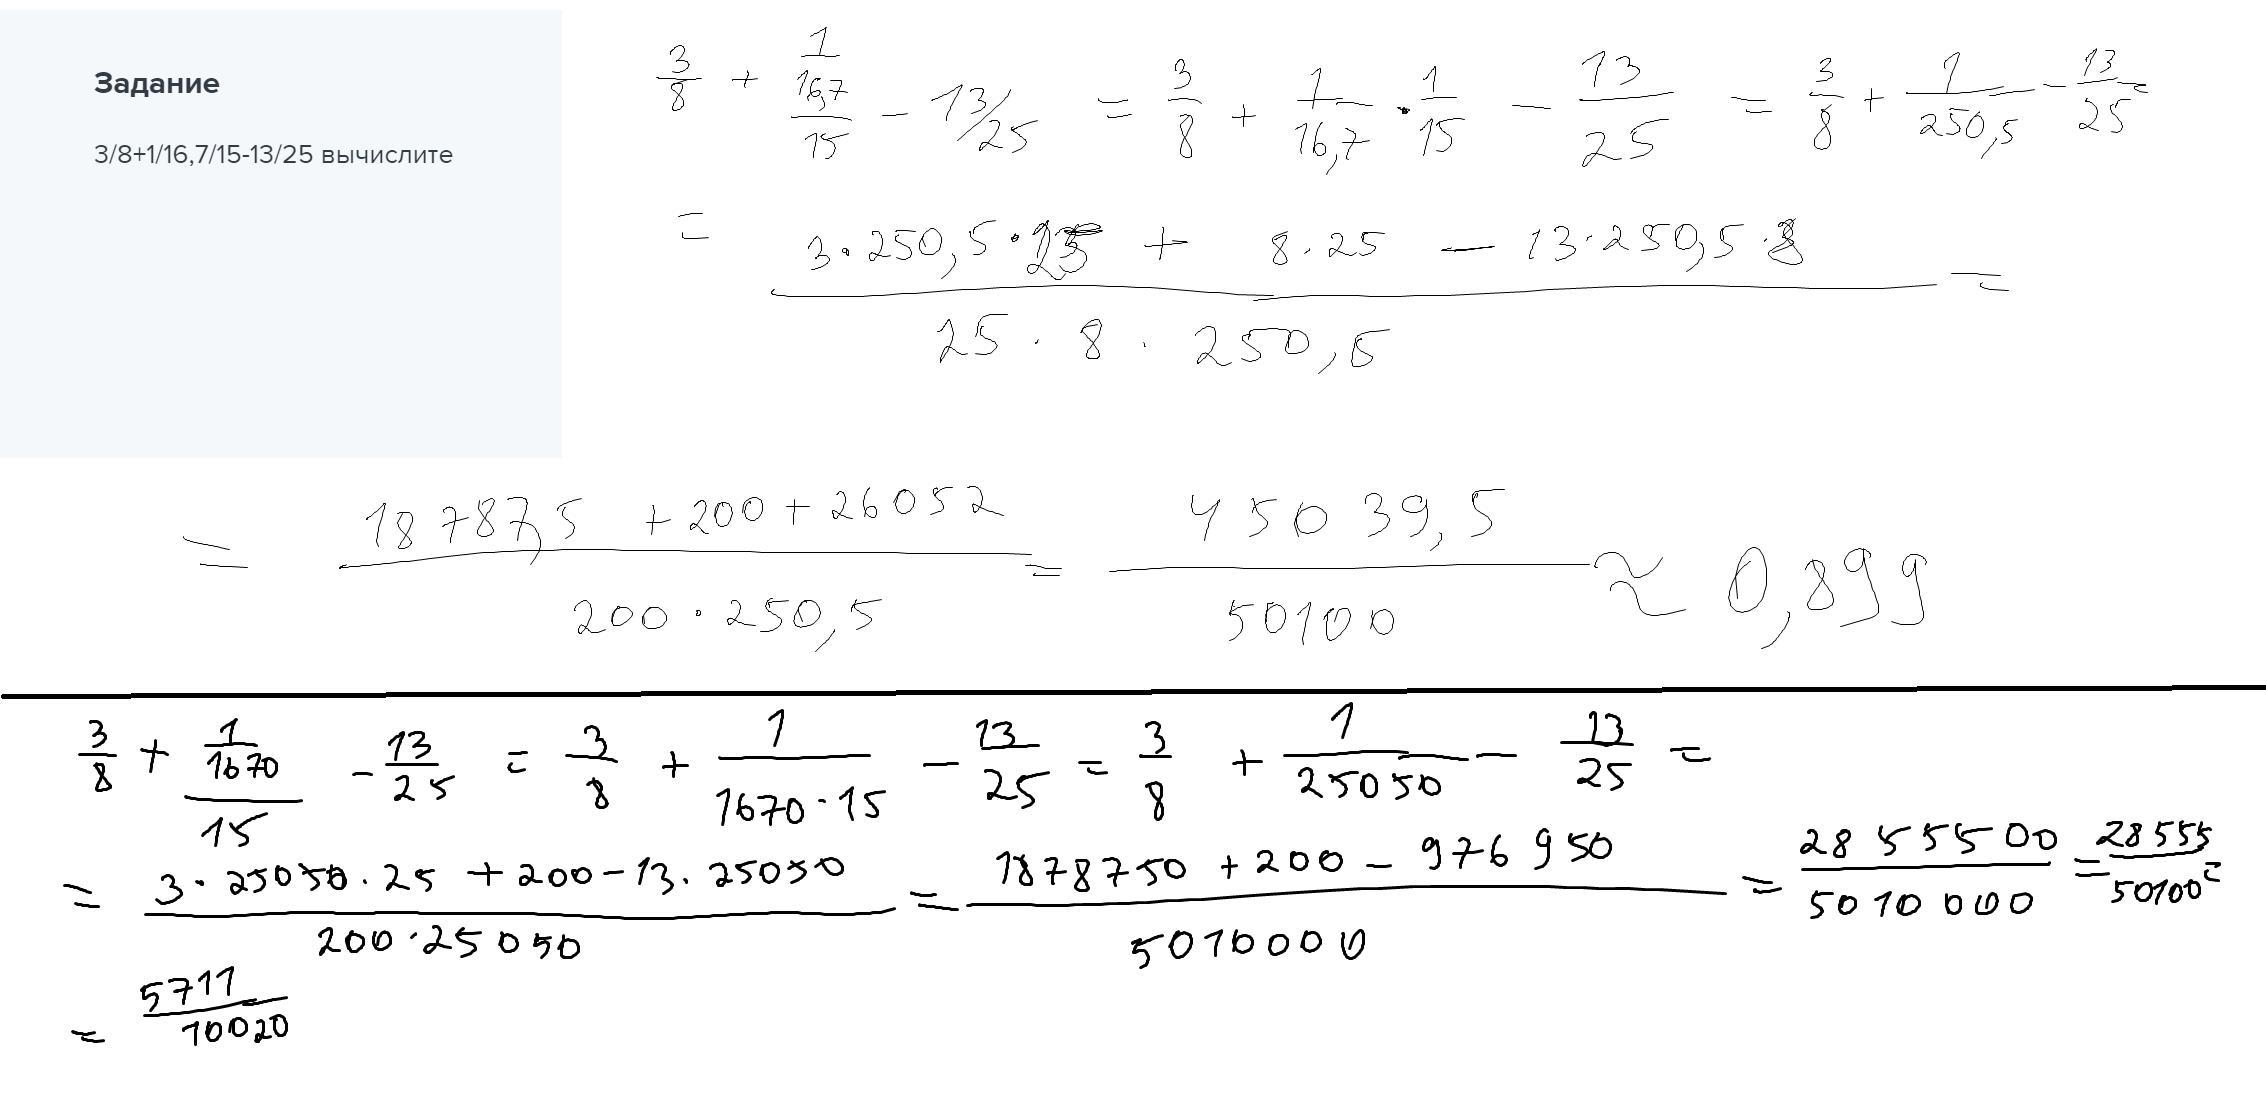 Задание
3/8+1/16,7/15-13/25 вычислите
3/8 + 1/16,7/15 - 13/25 = 3/8 + 1/16,7 · 1/15 - 13/25 = 3/8 + 1/250,5 - 13/25 =
= (3·250,5·25 + 8·25 - 13·250,5·8)/(25·8·250,5) =
= (18787,5 + 200 + 26052)/(200·250,5) = 45039,5/50100 ≈ 0,899
3/8 + 1/1670/15 - 13/25 = 3/8 + 1/(1670·15) - 13/25 = 3/8 + 1/25050 - 13/25 =
= (3·25050·25 + 200 - 13·25050)/(200·25050) = (1878750 + 200 - 976950)/5010000 = 2855500/5010000 = 28555/50100 =
= 5711/10020